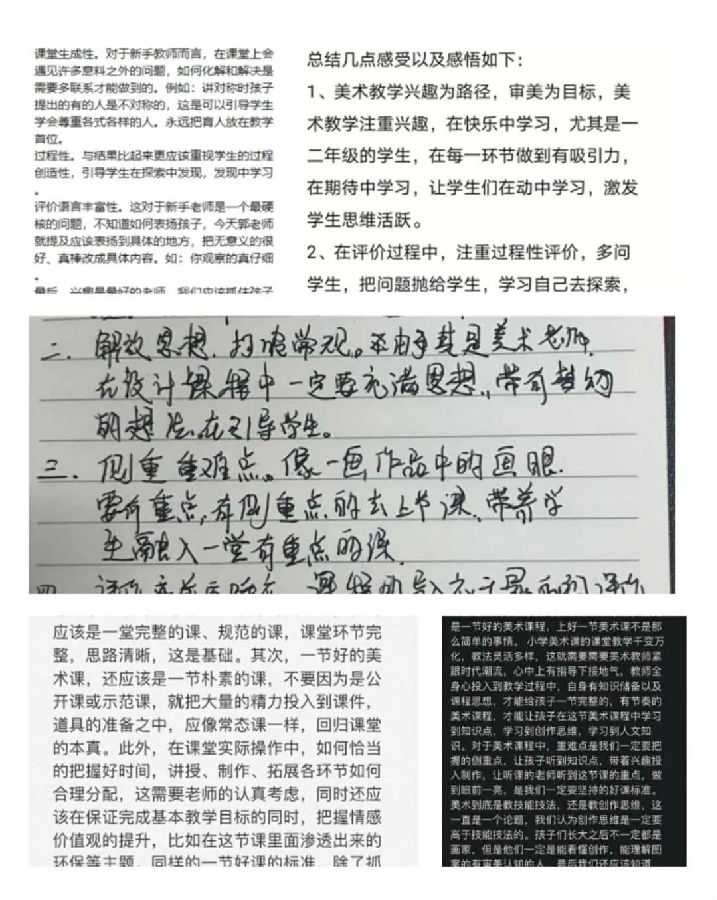 课堂生成性。对于新手教师而言，在课堂上会
遇见许多意料之外的问题，如何化解和解决是
需要多联系才能做到的。例如：讲对称时孩子
提出的有的人是不对称的，这是可以引导学生
学会尊重各式各样的人。永远把育人放在教学
首位。
过程性。与结果比起来更应该重视学生的过程
创造性，引导学生在探索中发现，发现中学习
。
评价语言丰富性。这对于新手老师是一个最硬
核的问题，不知道如何表扬孩子，今天郭老师
就提及应该表扬到具体的地方，把无意义的很
好、真棒改成具体内容。如：你观察的真仔细
。
最后，兴趣是最好的老师，我们应该抓住孩子
总结几点感受以及感悟如下：
1、美术教学兴趣为路径，审美为目标，美
术教学注重兴趣，在快乐中学习，尤其是一
二年级的学生，在每一环节做到有吸引力，
在期待中学习，让学生们在动中学习，激发
学生思维活跃。
2、在评价过程中，注重过程性评价，多问
学生，把问题抛给学生，学习自己去探索，
二、解放思想，打破常观。 是美术老师，
在设计课程中一定要充满思想，带有
的想法在引导学生。
三、侧重重难点。像一画作品中的画眼，
要有重点，有侧重点的去上节课、带着学
生融入一堂有重点的课。
四、
应该是一堂完整的课、规范的课，课堂环节完
整，思路清晰，这是基础。其次，一节好的美
术课，还应该是一节朴素的课，不要因为是公
开课或示范课，就把大量的精力投入到课件，
道具的准备之中，应像常态课一样，回归课堂
的本真。此外，在课堂实际操作中，如何恰当
的把握好时间，讲授、制作、拓展各环节如何
合理分配，这需要老师的认真考虑，同时还应
该在保证完成基本教学目标的同时，把握情感
价值观的提升，比如在这节课里面渗透出来的
环保等主题。同样的一节好课的标准，除了抓
是一节好的美术课程，上好一节美术课不是那
么简单的事情。小学美术课的课堂教学千变万
化，教法灵活多样，这就需要需要美术教师紧
跟时代潮流，心中上有指导下接地气。教师全
身心投入到教学过程中，自身有知识储备以及
课程思想，才能给孩子一节完整的，有节奏的
美术课程，才能让孩子在这节美术课程中学习
到知识点，学习到创作思维，学习到人文知
识。对于美术课程中，重难点是我们一定要把
握的侧重点，让孩子听到知识点，带着兴趣投
入制作，让听课的老师听到这节课的重点，做
到眼前一亮，是我们一定要坚持的好课标准。
美术到底是教技能技法，还是教创作思维，这
一直是一个论题，我们认为创作思维是一定要
高于技能技法的。孩子们长大之后不一定都是
画家，但是他们一定是能看懂创作，能理解图
案的有审美认知的人，最后我们还应该知道